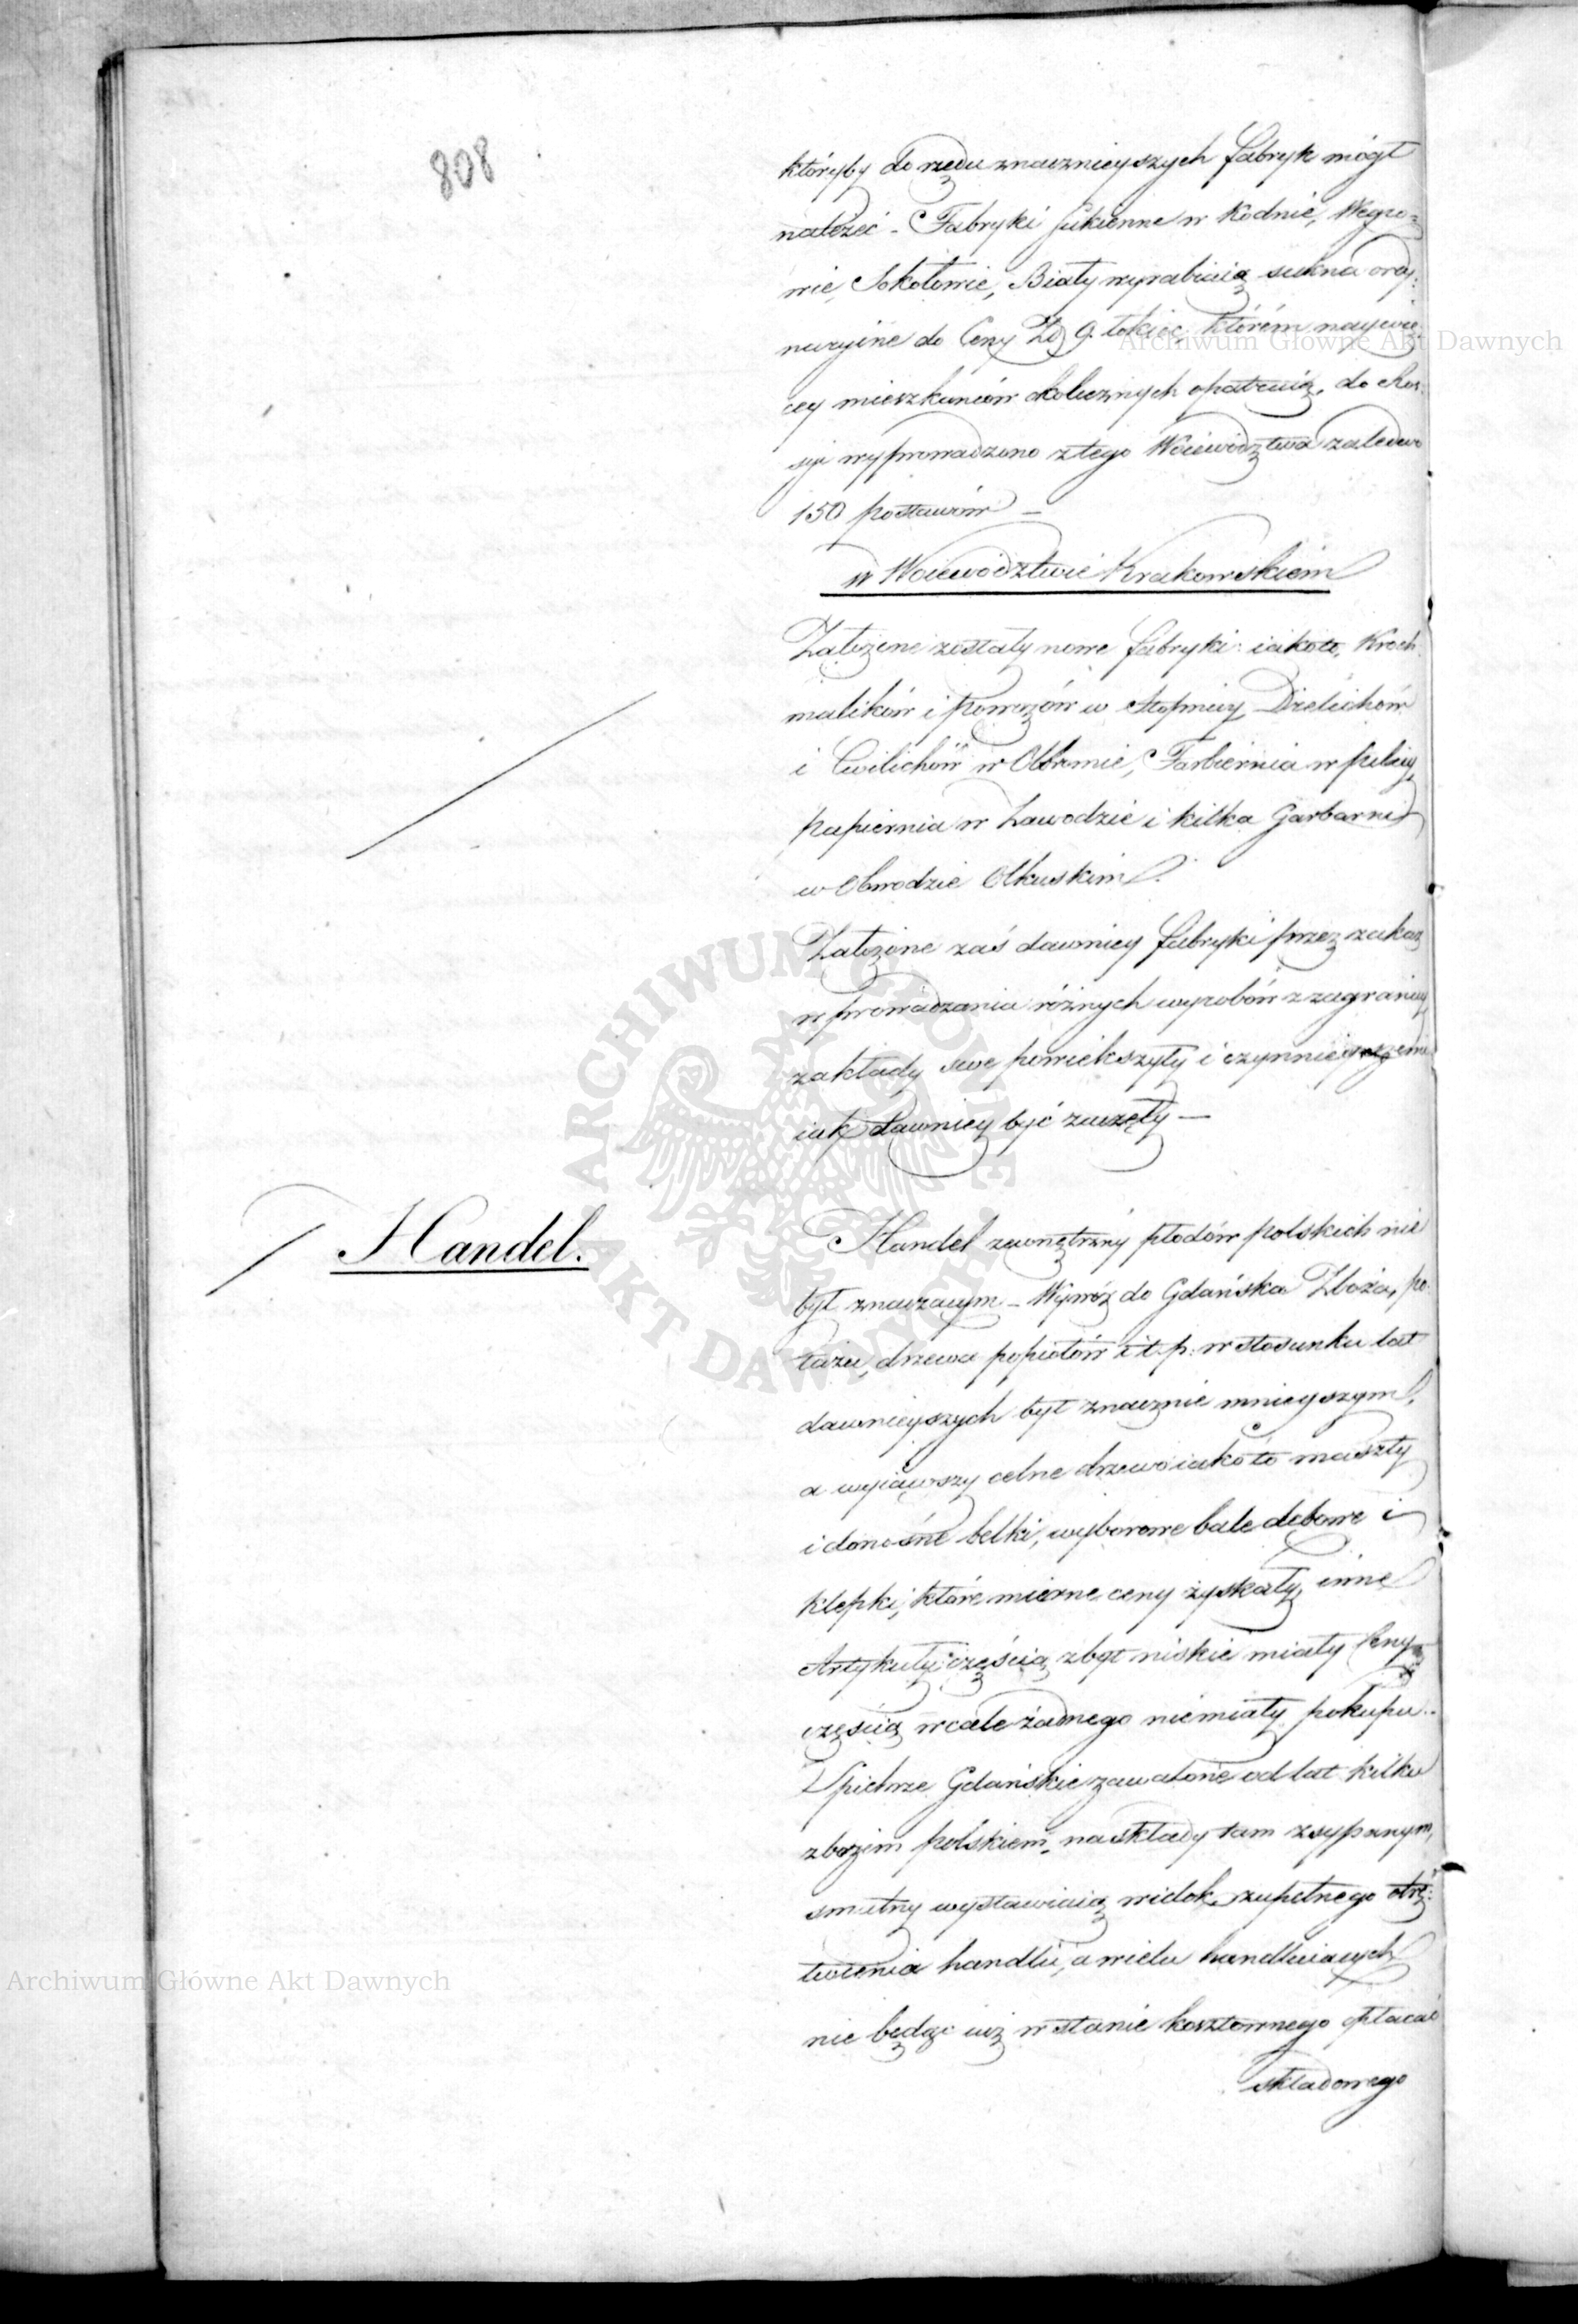 808
któryby do rzędu znacznieyszych fabryk mógł
należeć - Fabryki sukienne w Kodnie, Węgro=
wie, Sokołowie, Biały wyrabiaią sukna ordy:
naryine do Ceny Zł 9. łokieć, którém naywię:
cey mieszkańców okolicznych opatruią, do Ros:
syi wyprowadzono z tego Woiewództwa zaledwo
150 postawów —
w Woiewództwie Krakowskiém
Założone zostały nowe fabryki: iakoto, Kroch
malików i powrozów w Stopnicy Drelichów
i Cwilichów w Olbromie, Farbiernia w pilicy
papiernia w Zawodzie i kilka Garbarni
w Obwodzie Olkuskim.
Założone zaś dawniey fabryki przez zakaz
wprowadzania różnych wyrobów z zagranicy
zakłady swe powiekszyły i czynnieyszemi
iak dawniey być zaczęły —
Handel.
Handel zewnętrzny płodów polskich nie
był znaczącym - Wywóz do Gdańska Zboża, po:
tażu, drzewa popiołów i t. p: w stosunku lat
dawnieyszych był znacznie mnieyszym,
a wyiąwszy celne drzewo iako to maszty
i donośne belki, wyborowe bale dębowe i
klepki, które mierne ceny zyskały, inne
Artykuły częścią zbyt niskie miały Ceny
częścią wcale żadnego niemiały pokupu.
Spichrze Gdańskie zawalone od lat kilku
zbożem polskiem, na składy tam zsypanym,
smutny wystawiaią widok zupełnego otrę:
twienia handlu, a wielu handluiących
nie będąc iuż w stanie kosztownego opłacać
składowego
Archiwum Główne Akt Dawnych
Archiwum Główne Akt Dawnych
ARCHIWUM GŁÓWNE AKT DAWNYCH